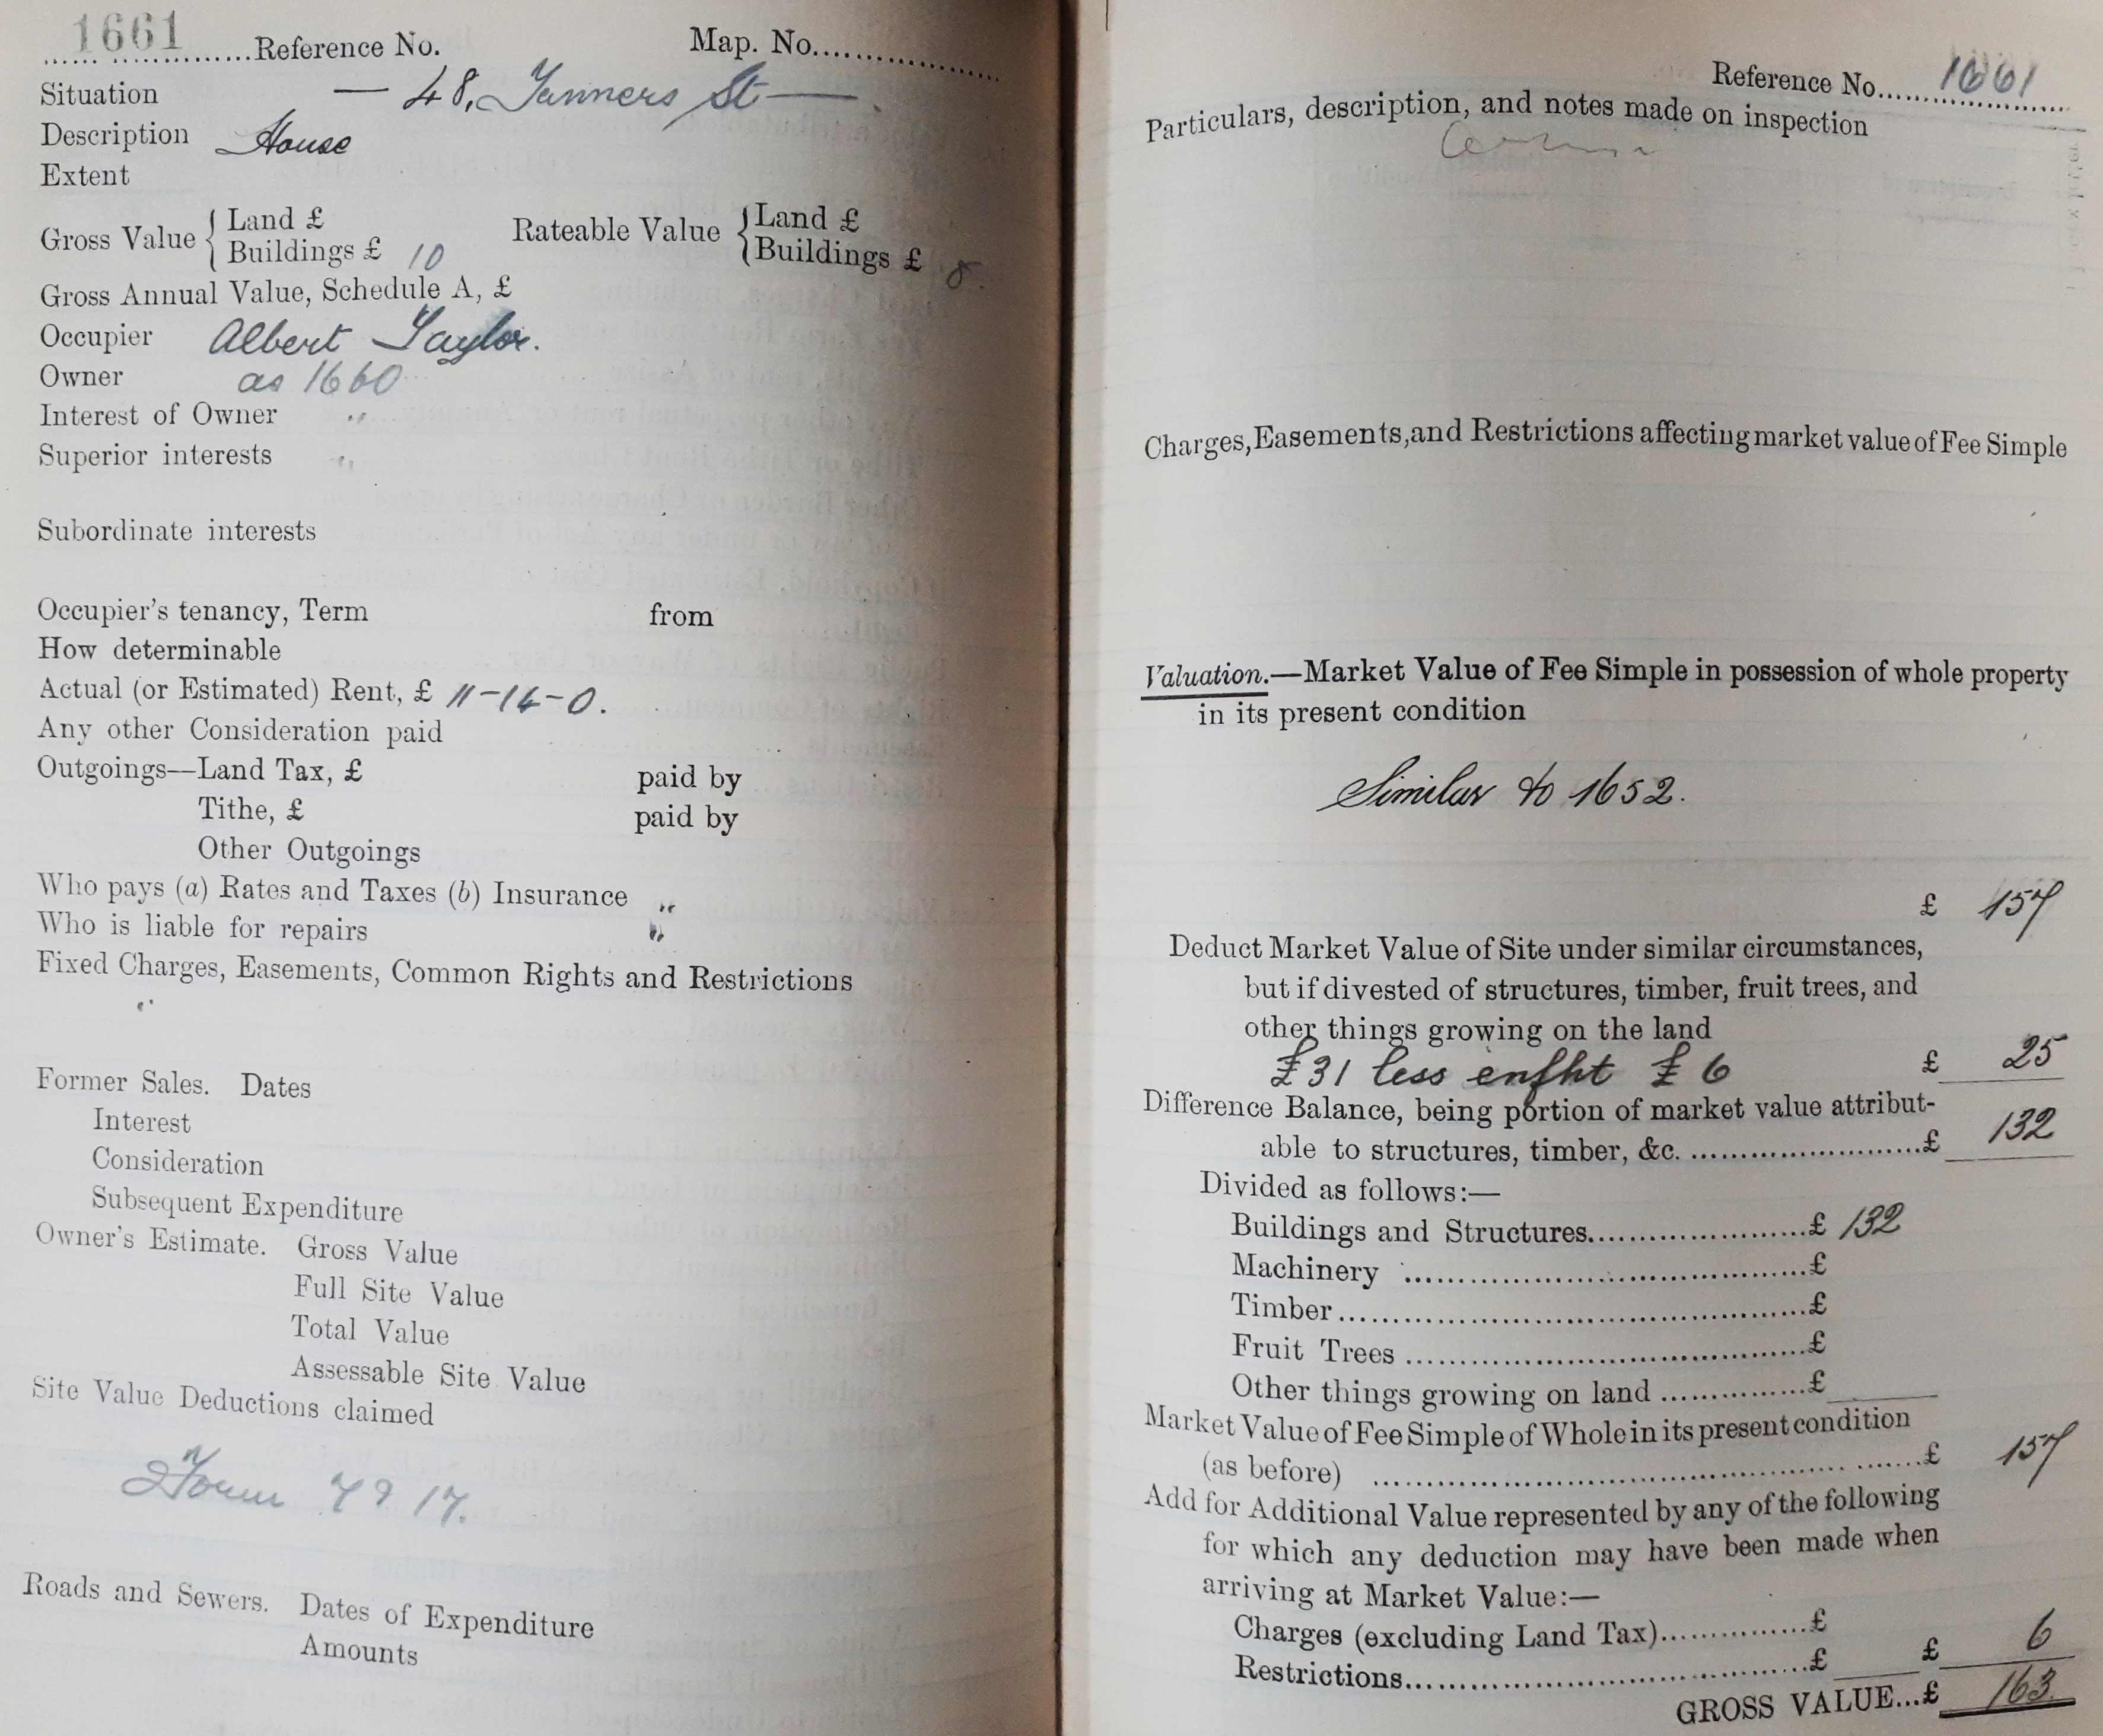 1661 Reference No. Map. No.
Situation — 48, Tanners St —
Description House
Extent
Gross Value { Land £
Buildings £ 10
Rateable Value { Land £
Buildings £ 8.
Gross Annual Value, Schedule A, £
Occupier Albert Taylor.
Owner as 1660
Interest of Owner "
Superior interests "
Subordinate interests
Occupier's tenancy, Term from
How determinable
Actual (or Estimated) Rent, £ 11-14-0.
Any other Consideration paid
Outgoings—Land Tax, £ paid by
Tithe, £ paid by
Other Outgoings
Who pays (a) Rates and Taxes (b) Insurance "
Who is liable for repairs "
Fixed Charges, Easements, Common Rights and Restrictions
"
Former Sales. Dates
Interest
Consideration
Subsequent Expenditure
Owner's Estimate. Gross Value
Full Site Value
Total Value
Assessable Site Value
Site Value Deductions claimed
Form 7 9 17.
Roads and Sewers. Dates of Expenditure
Amounts
Reference No. 1661
Particulars, description, and notes made on inspection
Charges, Easements, and Restrictions affecting market value of Fee Simple
Valuation.—Market Value of Fee Simple in possession of whole property
in its present condition
Similar to 1652.
£ 157
Deduct Market Value of Site under similar circumstances,
but if divested of structures, timber, fruit trees, and
other things growing on the land
£31 less enfht £6 £ 25
Difference Balance, being portion of market value attribut-
able to structures, timber, &c. £ 132
Divided as follows:—
Buildings and Structures £ 132
Machinery £
Timber £
Fruit Trees £
Other things growing on land £
Market Value of Fee Simple of Whole in its present condition
(as before) £ 157
Add for Additional Value represented by any of the following
for which any deduction may have been made when
arriving at Market Value:—
Charges (excluding Land Tax) £
Restrictions £ £ 6
GROSS VALUE...£ 163